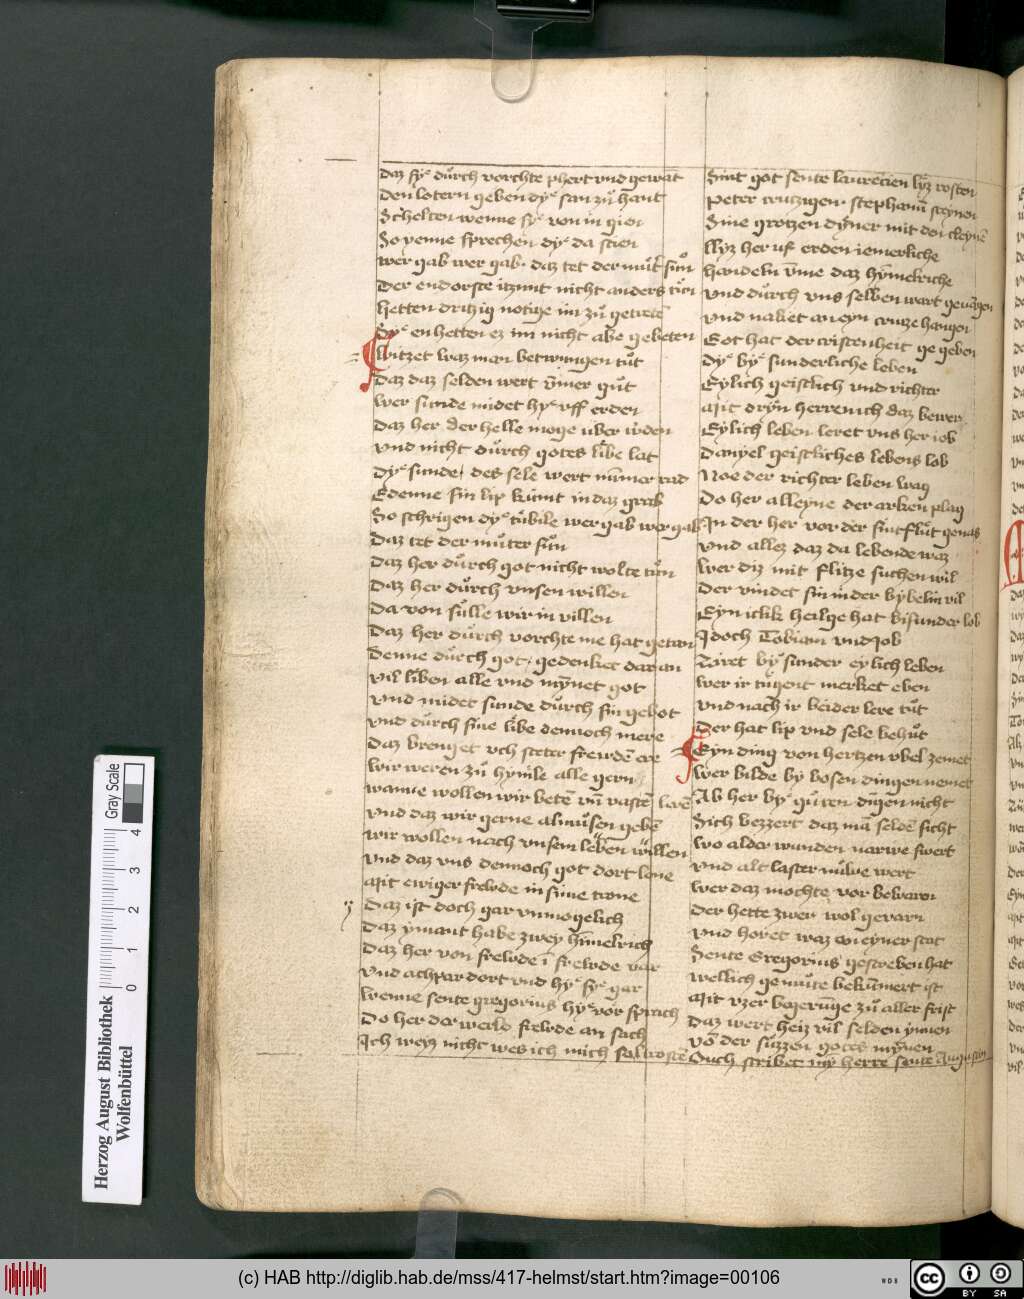 daz sy durch vorchte phert vnd gewāt
den lotern geben dy san zů hant
Schelten wenne sy von in gien
So yenne sprechen dy da stien
wer gab wer gab daz tet der můt sůn
Der endorste itzunt nicht anders tůn
hetten drizig notige im zů getretē
Dy en hetten ez im nicht abe gebeten
Nutzet waz man betwungen tůt
Daz daz selden wert ymer gůt
wer sunde midet hy vff erden
Daz her der helle moge uber werden
vnd nicht durch gotes libe lat
dy sunde des sele wert nimer rad
Edenne sin lip kumt in daz grab
So schrigen dy tubile wer gab wer gab
Daz tet der muter sůn
Daz her durch got nicht wolte tůn
Daz her durch vnsen willen
Da von sulle wir in villen
Daz her durch vorchte me hat getan
Denne durch got gedenket dar an
vil liben alle vnd mynnet got
vnd midet sunde durch sin gebot
vnd durch sine libe dennoch mere
Daz brenget vch steter freudē ere
wir weren zů hymile alle gern
wanne wollen wir betē vn̄ vastē leren
vnd daz wir gerne almůsen gebē
wir wollen nach vnsem leben willen
vnd daz vns dennoch got dort lone
Mit ewiger freude in sime trone
Daz ist doch gar vnmogelich
Daz ymant habe zwey himelrich
Daz her von freude ī freude var
vnd achpar dort vnd hy sy gar
wenne sente gregorius hy vor sprach
Do her der werld freude an sach
Ich weyz nicht wes ich mich sal trosten
Sint got sente laurecien lyz rosten
Peter crutzigen stephanū steynen
Sine grozen dyner mit den cleynē
Llyz her uf erden iemerliche
handeln vme daz hymelriche
vnd durch vns selben wart gevangen
vnd naket an eyn cruze hangen
Got hat der cristenheit ge geben
dy by sunderliche leben
Eylich geistlich vnd richter
Mit dryn herren ich daz bewer
Eylich leben leret vns her iob
Danyel geistliches lebens lob
Noe der richter leben wag
Do her alleyne der arken plag
In der her vor der sintflůt genas
vnd allez daz da lebende waz
wer diz mit flitze suchen wil
Der vindet sin in der bybelin vil
Eyn iclik heilge hat bisunder lob
Idoch Tobiam vnd Job
Zciret by sunder eylich leben
wer ir tugent merket eben
vnd nach ir beider lere tůt
Der hat lip vnd sele behůt
Eyn ding von hertzen vbel zemet
wer bilde by bosen dingen nemet
Ab her by guten dingen nicht
Sich bezzert daz mā seldē sicht
wo alder wunden narwe swert
vnd alt laster nuwe wert
wer daz mochte vor bewaren
Der hette zwer wol gevarn
vnd horet waz an eyner stat
Sente Gregorius gescreben hat
wellich gemute bekumert ist
Mit vzer begerunge zů aller frist
Daz wert heiz vil selden ynnen
vō der suzzen gotes mynnen
Ouch scribet my herre sente Augustin
Herzog August Bibliothek
Wolfenbüttel
0 1 2 3 4
Gray Scale
(c) HAB http://diglib.hab.de/mss/417-helmst/start.htm?image=00106
WDB
CC BY SA